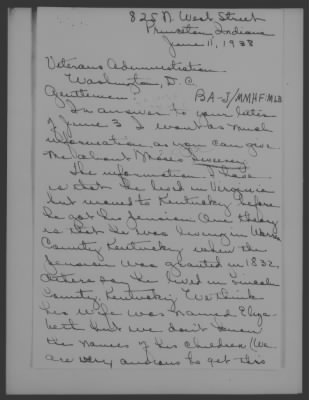 825 N. West Street
Princeton, Indiana
June 11, 1938
Veterans Administration
Washington, D.C.
Gentlemen: BA-J/MMHF-MLB
In answer to your letter
of June 3 I want as much
information as you can give
me about Moses Sweeney
The information I have
is that he lived in Virginia
but moved to Kentucky before
he got his pension One theory
is that he was living in Warren
County Kentucky when the
pension was granted in 1832.
Others say he lived in Lincoln
County, Kentucky We think
his wife was named Eliza-
beth but we don't know
the names of his children (We
are very anxious to get this